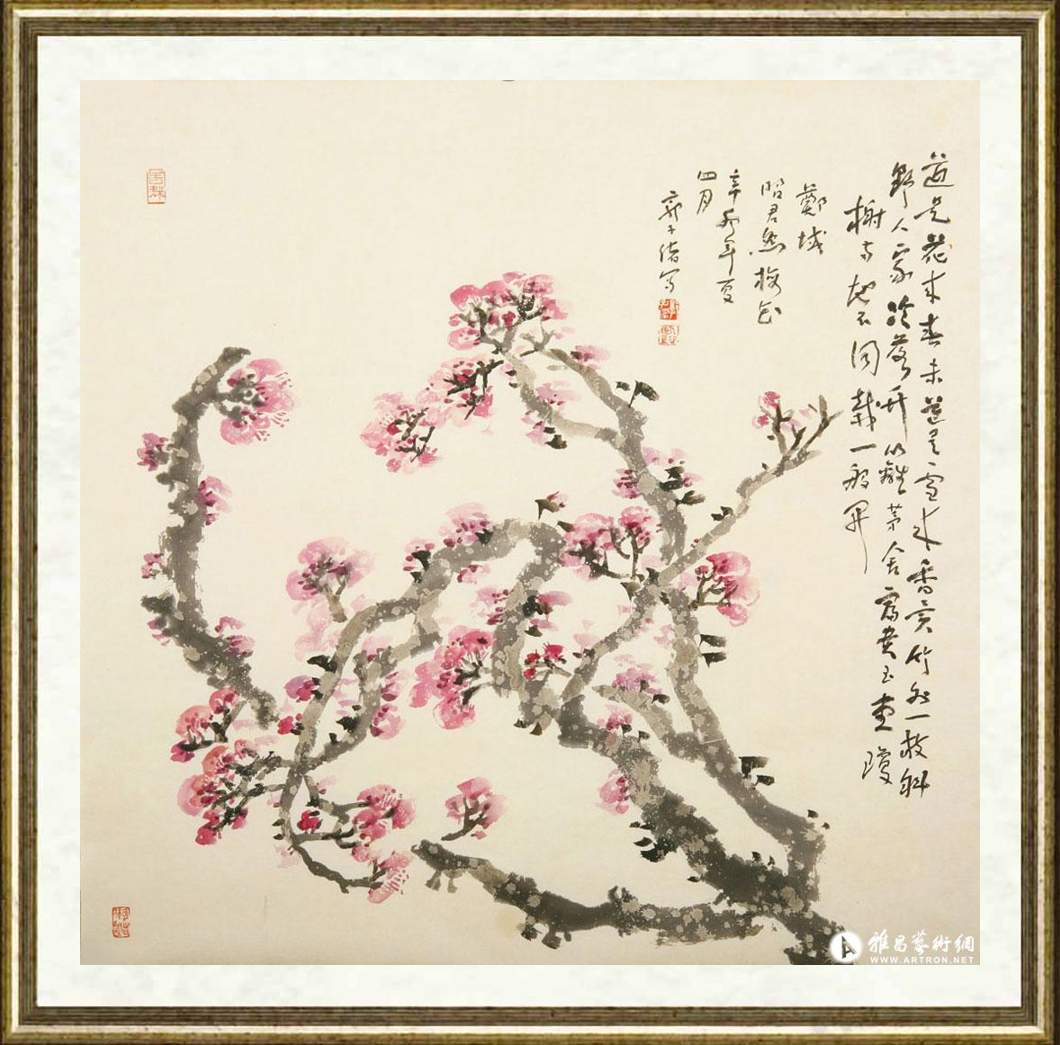 道是花来春未道是雪来香異竹外一枝斜
野人家冷落竹籬茅舍富貴玉堂瓊
榭兩地不同栽一般開
鄭域
昭君怨梅花
辛卯年夏
四月
郭子绪写
雅昌藝術網
WWW.ARTRON.NET